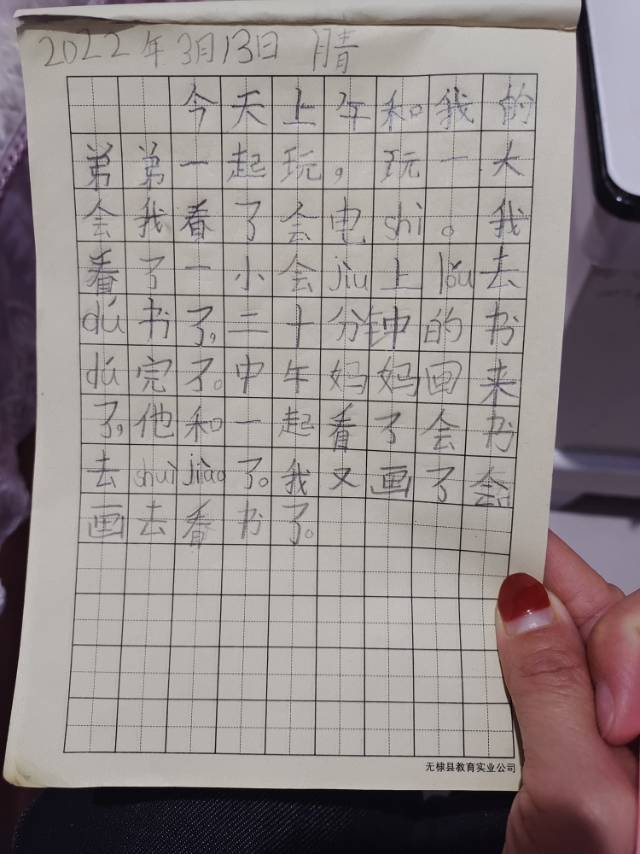 2022年3月13日 晴
今天上午和我的
弟弟一起玩，玩一大
会我看了会电shì。我
看了一小会jiù上lóu去
dú书了，二十分钟的书
dú完了。中午妈妈回来
了，他和一起看了会书
去shuì jiào了。我又画了会
画去看书了。
无棣县教育实业公司